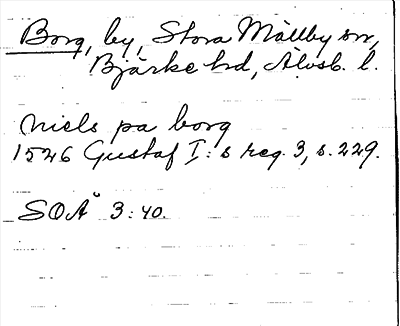 Borg, by, Stora Mällby sn,
Bjärke hd, Älvsb. l.
niels pa borg
1526 Gustaf I:s reg. 3, s. 229.
SOÄ 3:40.